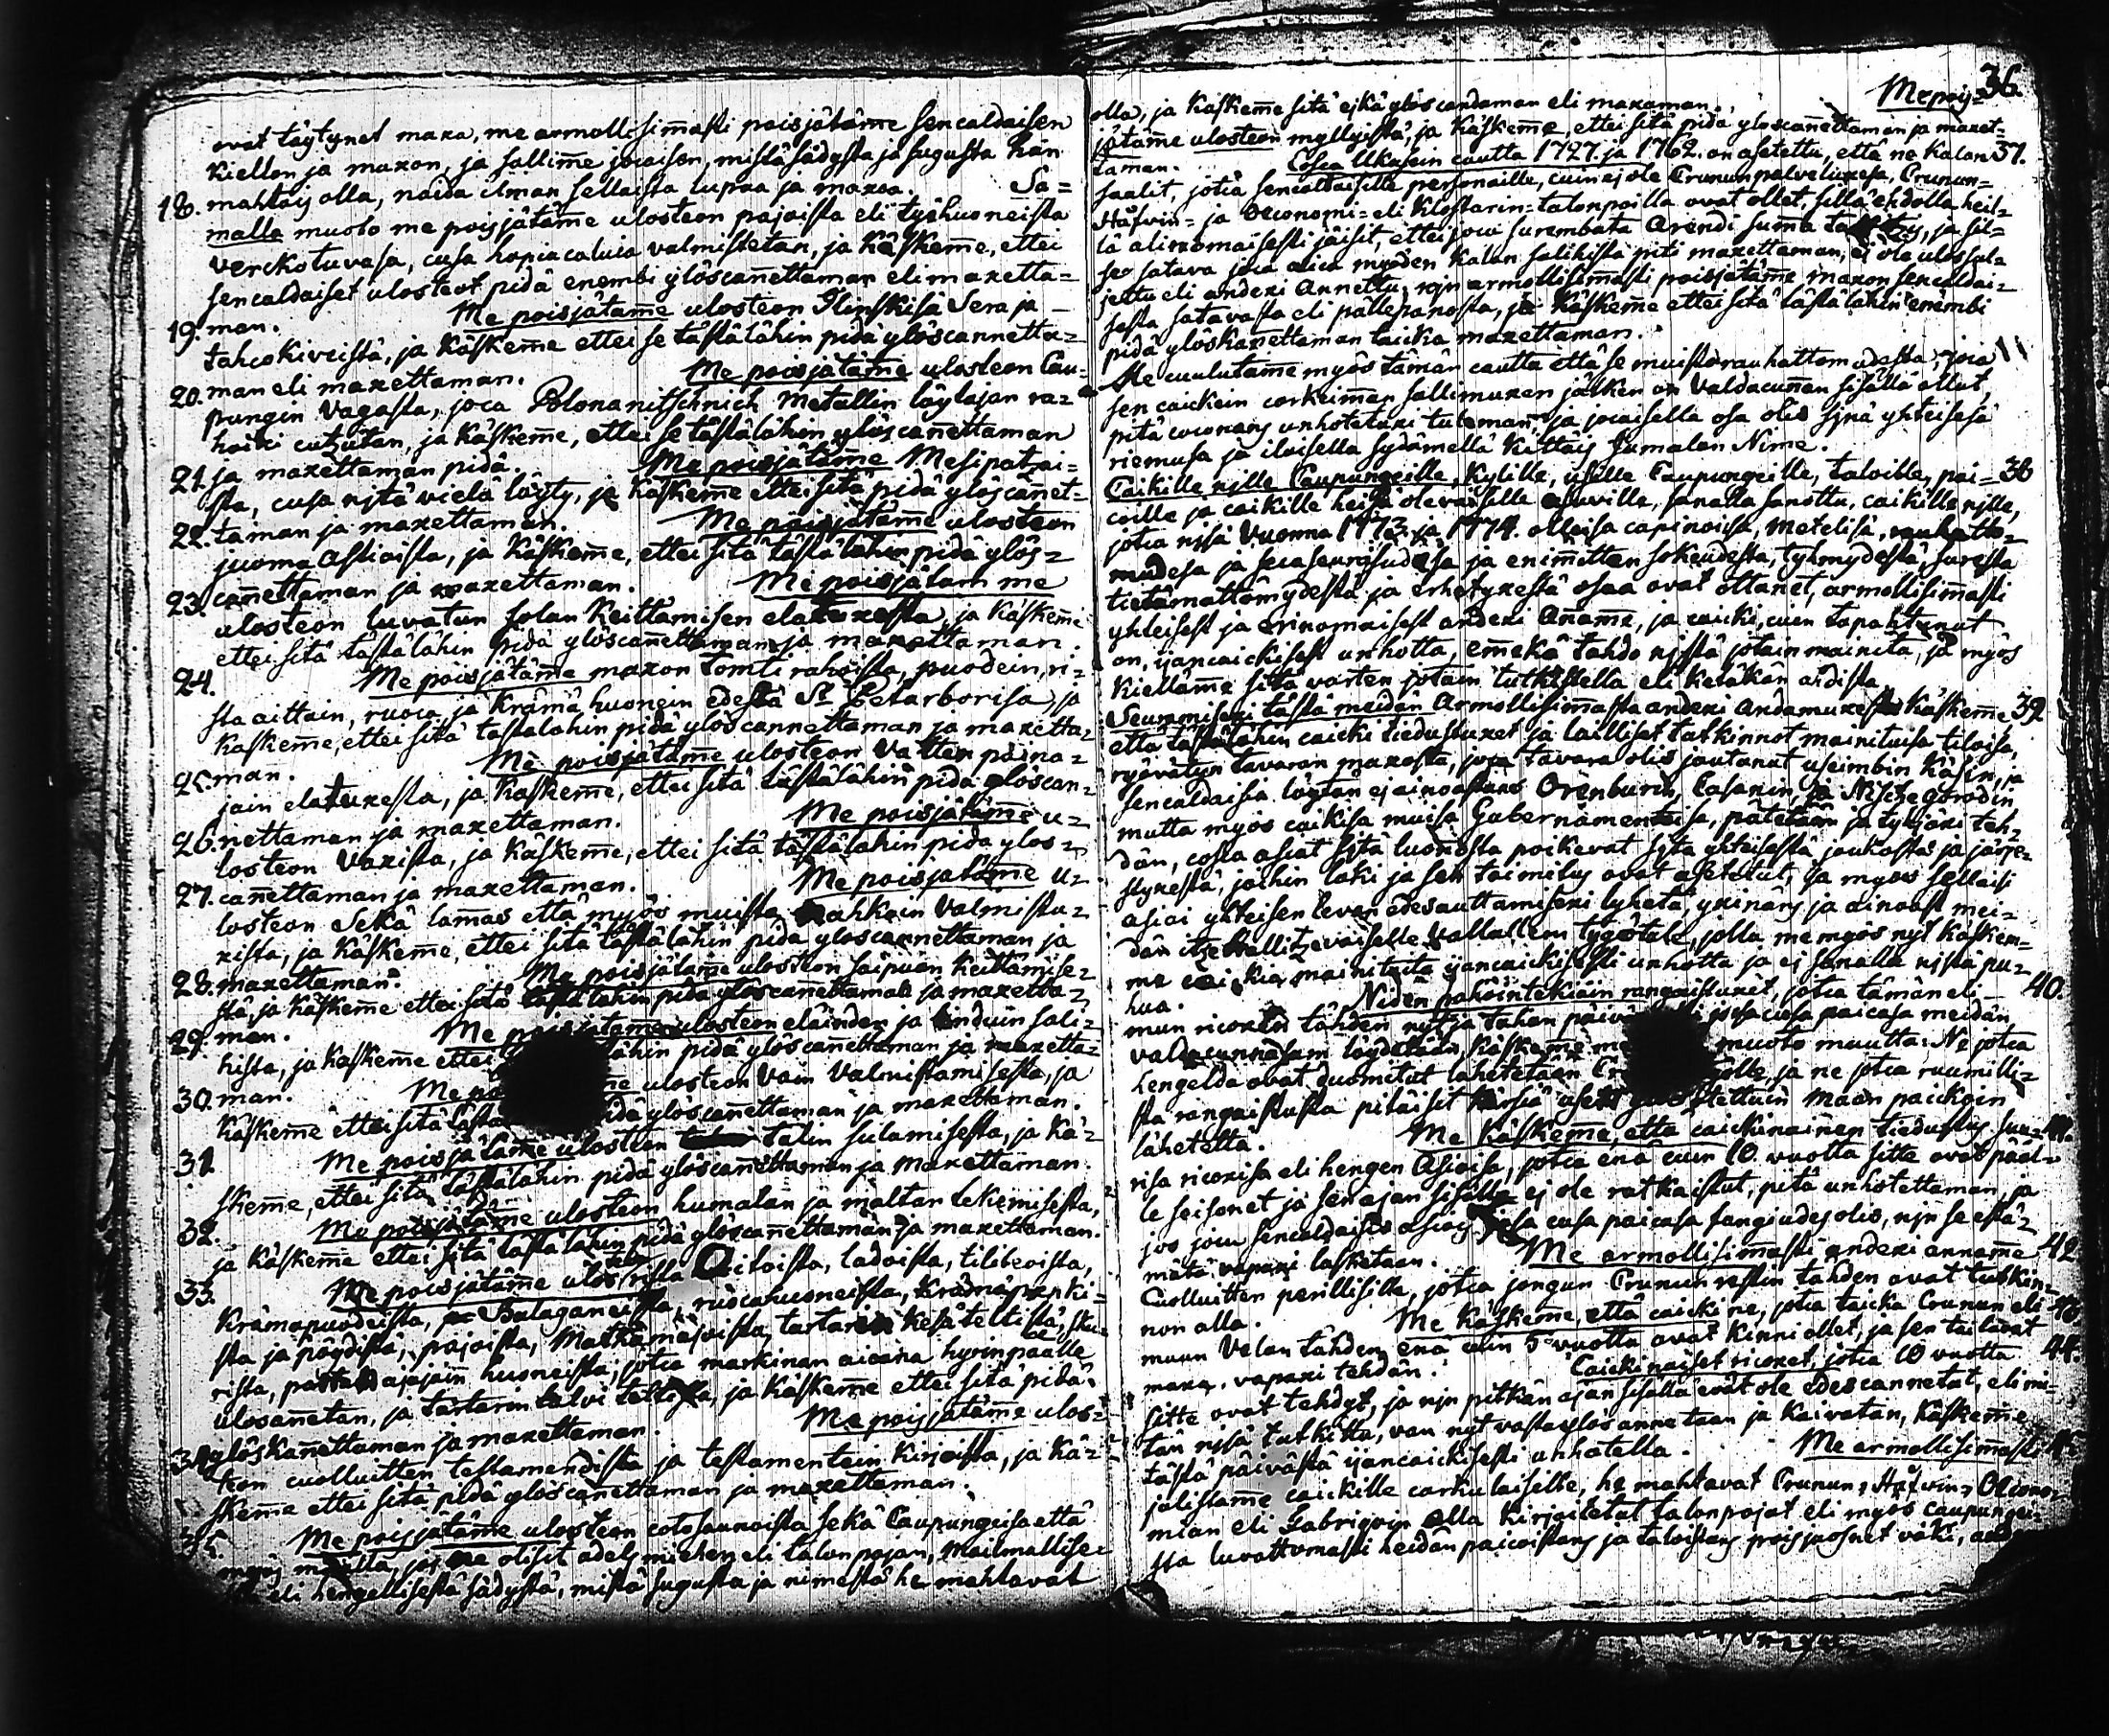 ovat täytynet maxa, me armollisimasti poisjätäme sencaldaisen
kiellon ja maxon, ja sallime jocaisen, mistä sädystä ja sugusta hän
mahtaij olla, naida ilman sellaista lupaa ja maxoa. Sa=
18. malla muoto me poisjätäme ulosteon pajoista eli työhuoneista
verckotuvasa, cusa hopiacaluia valmistetan, ja käskeme, ettei
sencaldaiset ulosteot pidä enembi ylöscanettaman eli maxetta=
19. man. Me poisjätame ulosteon Ilinskisä Sera ja
tahcokiveistä, ja käskeme ettei se tästälähin pidä ylöscannetta=
20. man eli maxettaman. Me poisjätäme ulosteon Cau=
pungin Vagasta, joca Polonanitschnich Metallin löylajan ra=
haxi cutzutan, ja käskeme, ettei se tästälähin ylöscanettaman
21. ja maxettaman pidä. Me poisjätäme Mesipatzai=
sta, cusa nijtä vielä löyty, ja käskeme ettei sitä pidä ylöscanet=
22. taman ja maxettaman. Me poisjätäme ulosteon
juoma astioista, ja käskeme, ettei sitä tästälähin pidä ylös=
23. canettaman ja maxettaman. Me poisjätäm me
ulosteon luvatun solan keittamisen elatuxesta, ja käskeme
ettei sitä tästälähin pidä ylöscanettaman ja maxettaman.
24. Me poisjätäme maxon tomti rahoista, puodein, ri=
sta aittain, ruoca ja kråmå huonein edestä St Petarborisa, ja
käskeme, ettei sitä tästälähin pidä ylöscannettaman ja maxetta=
25. man. Me poisjätäme ulosteon Vatten paina=
jain elatuxesta, ja käskeme, ettei sitä tästälähin pidä ylöscan=
26. nettaman ja maxettaman. Me poisjätäme u=
losteon Vaxista, ja käskeme, ettei sitä tästälähin pidä ylös=
27. canettaman ja maxettaman. Me poisjätäme u=
losteon Sekä lamas että myös muista nahkain Valmistu=
xista, ja käskeme, ettei sitä tästälähin pidä ylöscannettaman ja
28. maxettaman. Me poisjätäme ulosteon saipuan keittämise=
stä, ja käskeme ettei sitä tästälähin pidä ylöscanettaman ja maxetta=
29. man. Me poisjätame ulosteon eläinden ja linduin sali=
hista, ja käskeme ettei lähin pidä ylöscanettaman ja maxetta=
30. man. Me po me ulosteon Voin Valmistamisesta, ja
käskeme ettei sitä tästä pidä ylöscanettaman ja maxettaman.
31. Me poisjätäme ulosteon talin sulamisesta, ja kä=
skeme, ettei sitä tästälähin pidä ylöscanettaman ja maxettaman.
32. Me poisjätäme ulosteon humalan ja maltan tekemisesta,
ja käskeme ettei sitä tästälähin pidä ylöscanettaman ja maxettaman.
33. Me poisjätäme ulos Aitoista, ladoista,
kråmopuodeista, Balaganeista, ruocahuoneista,
sta ja pöydistä, pajoista, tartarin kesäteltistä,
rista, huoneista, jotca markinan aicana hyvinpäälle
ulosanetan, ja tartarin talvi teltoista, ja käskeme ettei sitä pidä
34. ylöskanettaman ja maxettaman. Me poisjätäme ulos=
teon cuolluitten testamendista ja testamentein kirjoista, ja kä=
skeme ettei sitä pidä ylöscanettaman ja maxettaman.
35. Me poisjätäme ulosteon cotosaunoista sekä Caupungeisa että
myös muilla, jos ne olisit adelsmiehen eli talonpojan, Maalmallise=
eli hengellisestä sädystä, mistä sugusta ja nimestä he mahtavat
36.
olla, ja käskeme sitä ejkä ylöscandaman eli maxaman. Mepois=
jätäme ulosteon myllyistä, ja käskeme, ettei sitä pidä ylöscanettaman ja maxet=
taman. Cosca Ukasein cautta 1727. ja 1762. on asetettu, että ne kalan 37.
saalit, jotca sencaltaiselle personaille, cuin ej ole Crununpalveluxesa, Crunun=
Håfvin= ja Oeconomi= eli Klostarin=talonpoilla ovat ollet, sillä ehdolla heil=
lä alinomaisesti jäisit, ettei joui surembata Arendi suma ja sil=
se satava joca aica myöden kalan salihista piti maxettaman, ei ole ulossula
jettu eli andexi Annettu, nijn armollisimasti poisjätäme maxon sencaldai=
sesta satavasta eli pällepanosta, ja käskeme ettei sitä tästälähin enembi
pidä ylöskanettaman taicka maxettaman.
Me cuulutame myös tämän cautta että se muisto rauhattomudesta, joca
sen caickein corkeiman sallimuxen jälken on Valdacunan sisällä ollut,
pitä coconans unhotetuxi tuleman, ja jocaisella osa olis sijnä yhteisesä
riemusa ja iloisella sydämellä kittäis Jumalan Nime.
Caikille nijlle Caupungeille, Kylille, usille Caupungeille, taloille, pai= 38
coille ja caikille heisä olevaiselle asuville, sanalla sanottu, caikille nijlle,
jotca nijsä Vuonna 1773. ja 1774. olleisa capinoisa, metelisä, rauhatto=
mudesa ja secaseuraisudesa ja enimitten sokeudesta, tyhmydestä, suresta
tietämattömydestä ja erhetyxestä osaa ovat ottanet, armollisimasti
yhteisest ja erinomaisest andexi Aname, ja caicki, cuin tapahtunut
on, ijancaickisest unhotta, emekä tahdo nijstä jotain mainita, ja myös
kieldäme sitä varten jotain tutkistella eli ketäkän ahdista.
Seurammisexi tästä meidän Armollisimasta andexi Andamuxesta käskeme 39
että tästälähin caicki tiedustuxet ja lailliset tutkinnot mainituisa tiloisa,
ryövätyn tavaran maxosta, joca tavara olis joutunut useimbin käsin, ja
sencaldaisia löytän ej ainoastans Orenburin, Casanin, ja Nischegorodin,
mutta myös caikisa muisa Gubernamenteisa, pätetään ja tyhjäxi teh=
dän, cosca asiat sijtä luonosta poikevat sijtä yhteisestä joukosta ja järje=
styxestä, johin laki ja sen toimitus ovat asetetut, ja myös sellaisi
asiai yhteisen levon edesauttamisexi lyhetä, yxinäns ja ainoast mei=
dän itzevallitzevaiselle Vallallem tygötule, jolla me myös nyt käskem=
me caickia mainituita ijancaickisesti unhotta ja ej sanalla nijstä pu=
hua. Niden pahointekiäin rangaistuxet, jotca tämän eli 40.
mun ricoxen tähden nyt ja tähan päivä josacusa paicasa meidän
valdacunnasam löydetään käskeme me muoto muutta: Ne jotca
hengelda ovat duomitut lähetetään ja ne jotca ruumilli=
sta rangaistusta pitäisit kärsiä maan paickoin
lähetettä. Me käskeme, että caickinainen tiedustus suu= 41.
risa ricoxisa eli hengen Asioisa, jotca enä cuin 10 vuotta sitte ovat pääl=
le seisonet ja sen ajan sisällä ej ole ratkaistut, pitä unhotettaman, ja
jos jocu sencaldaises asias cusa paicasa fangiudes olis, nijn se estä=
mätä vapaxi lasketaan. Me armollisimasti andexi anname 42
Cuolluitten perillisille, jotca jongun Crunun restin tähden ovat tutkin=
non alla. Me käskeme, että caicki ne, jotca taicka Crunun eli 43.
muun Velan tähden enä cuin 5 vuotta ovat kinni ollet, ja sen tailadat
maxa, vapaxi tehdän. Caickinaiset ricoxet, jotca 10 vuotta 44.
sitte ovat tehdyt, ja nijn pitkän ajan sisällä evät ole edescannetut, eli mi=
tän nijsä tutkittu, van nyt vasta ylösannetaan ja kaivatan, käskeme
tästä päivästä ijancaickisesti unhotella. Me armollisimasti 45.
julistame caickille carkulaiselle, he mahtavat Crunun, Håfwin, Oecono=
mian eli Fabriqvin alla kirjoitetut talonpojat eli myös caupungei=
sta luvattomasti heidän paicoistans ja taloistans poisjuosnet väki,